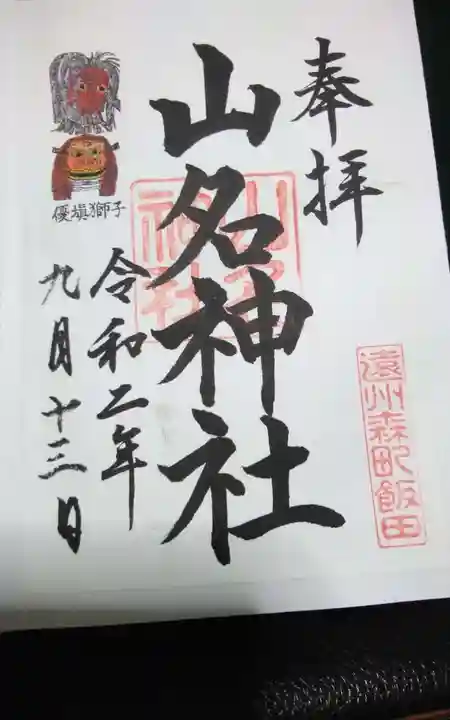 奉拝
遠州森町飯田
山名神社
山名
神社
優塡獅子
令和二年
九月十三日